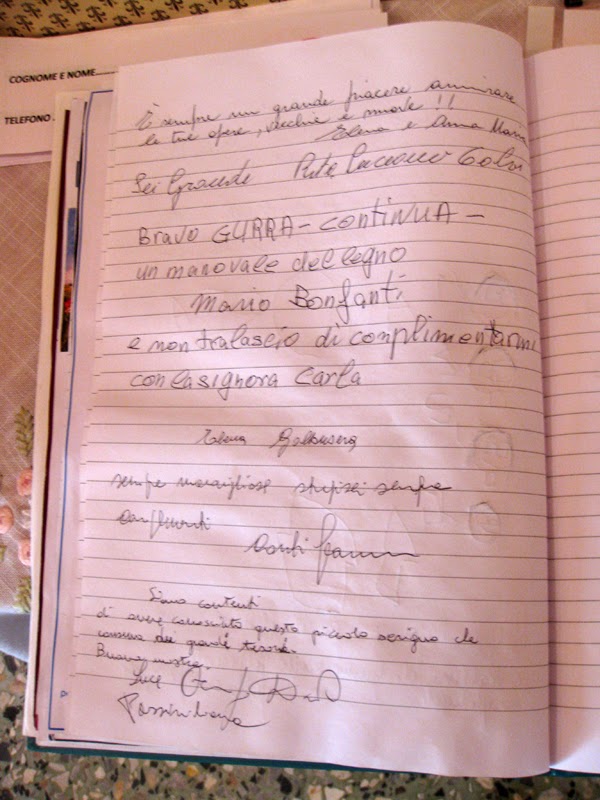 COGNOME E NOME......
TELEFONO .
È sempre un grande piacere ammirare
le tue opere, vecchie e nuove !!
Elena e Anna Maria
Sei Grande
Bravo GURRA - CONTINUA -
un manovale del legno
Mario Bonfanti
e non tralascio di complimentarmi
con la signora Carla
Elena Galbusera
sempre meravigliose stupisci sempre
Siamo contenti
di avere conosciuto questo piccolo
conserva dei grandi tesori.
Buona mostra.
Luce